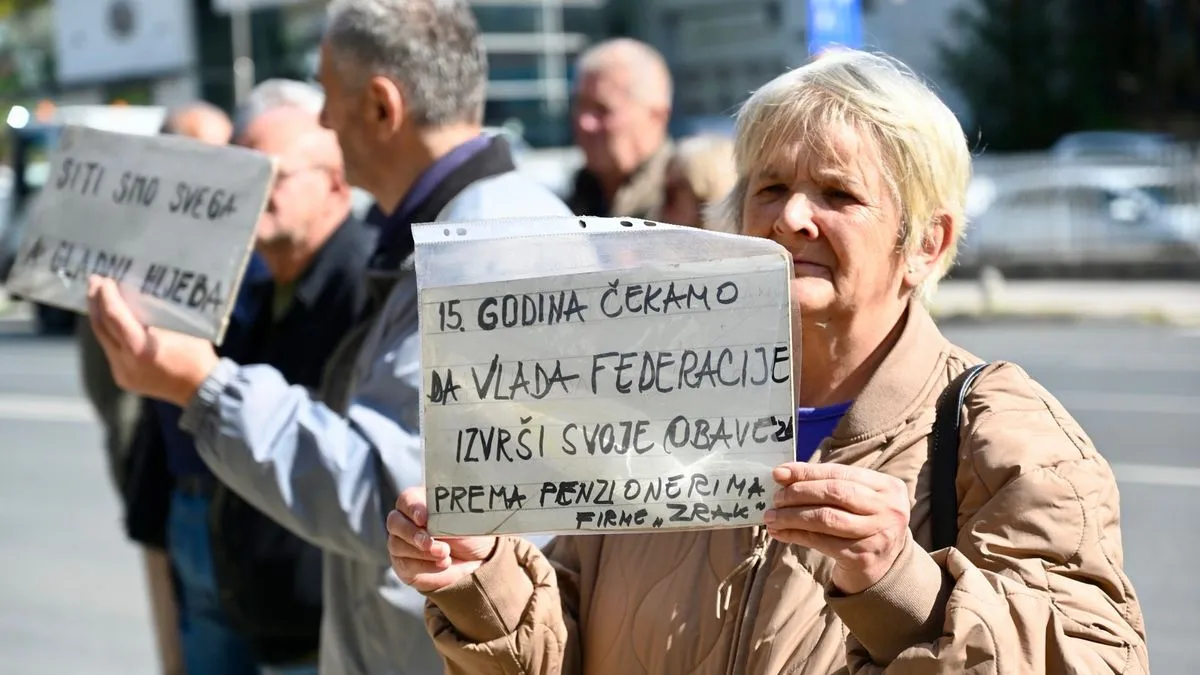 SITI SMO SVEGA
A GLADNI HLJEBA
15. GODINA ČEKAMO
DA VLADA FEDERACIJE
IZVRŠI SVOJE OBAVEZE
PREMA PENZIONERIMA
FIRME „ZRAK"